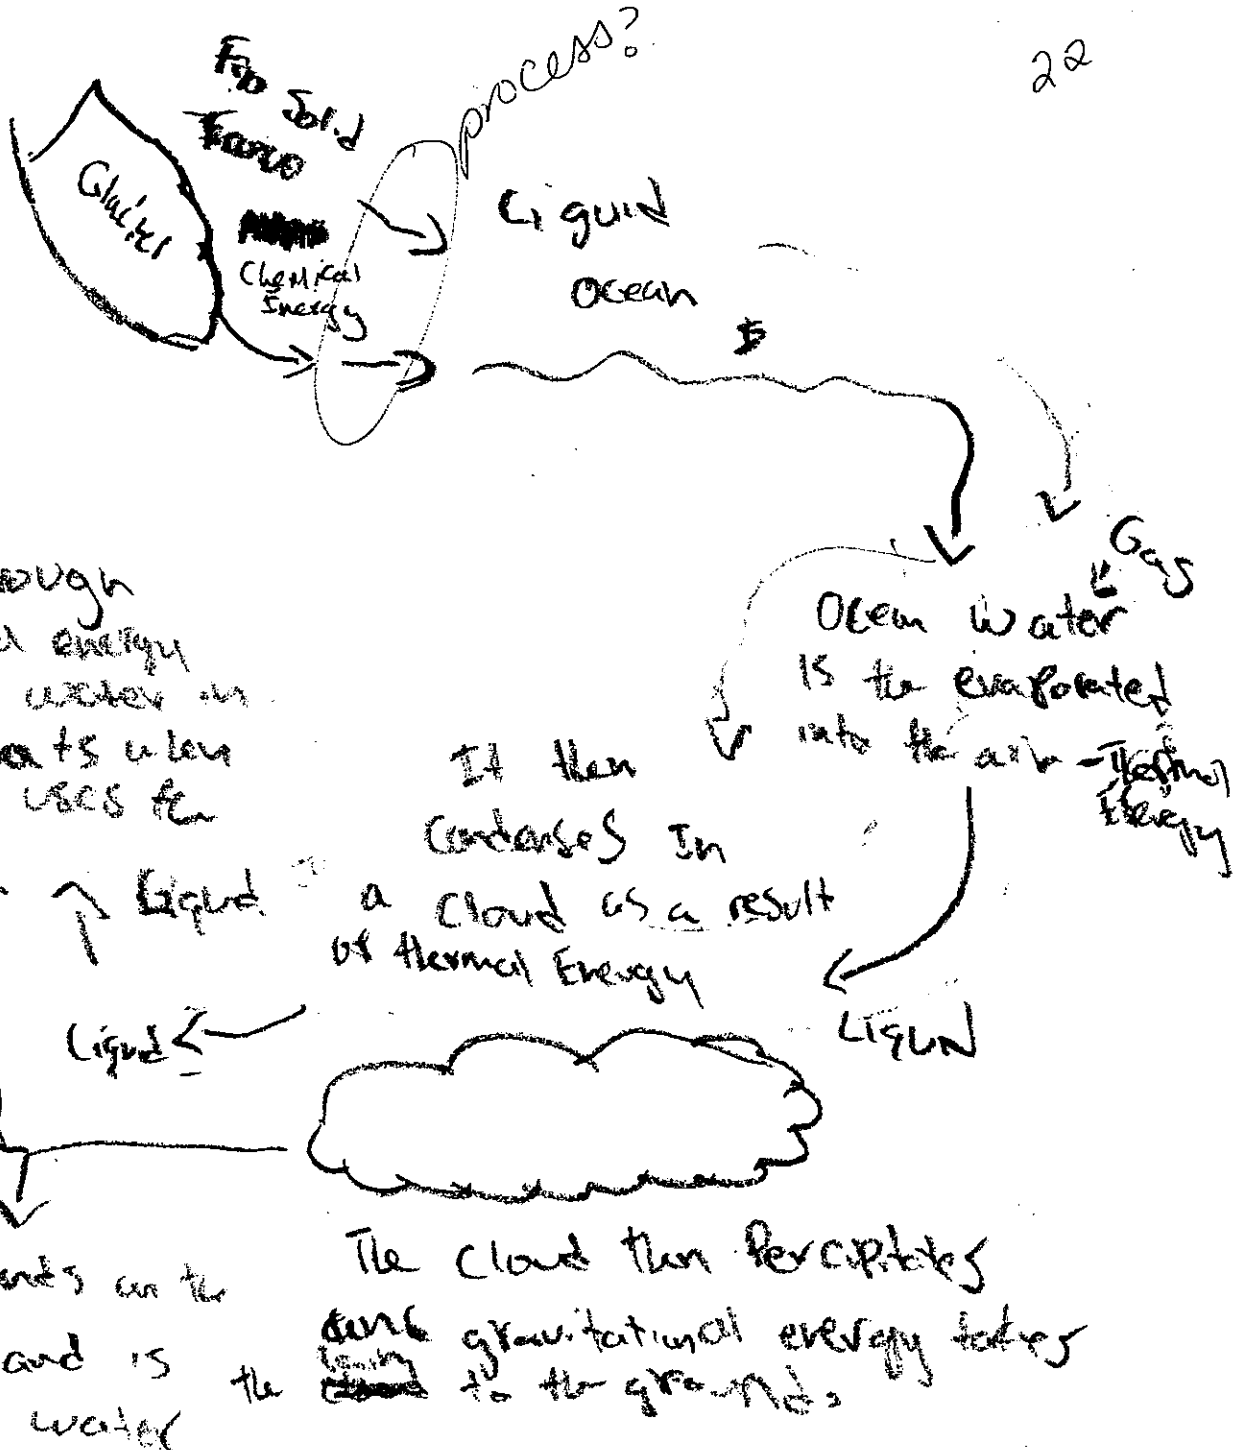 process?
22
Solid
Glacier
Chemical
Energy
Liquid
Ocean
Gas
Ocean Water
is the evaporated
into the air - Thermal
Energy
ough
energy
water in
ats when
uses the
Liquid
It then
Condenses In
a Cloud as a result
of thermal Energy
Liquid
Liquid
The Cloud then Perciptates
gravitational energy takes
the to the grounds
ands on the
and is
water